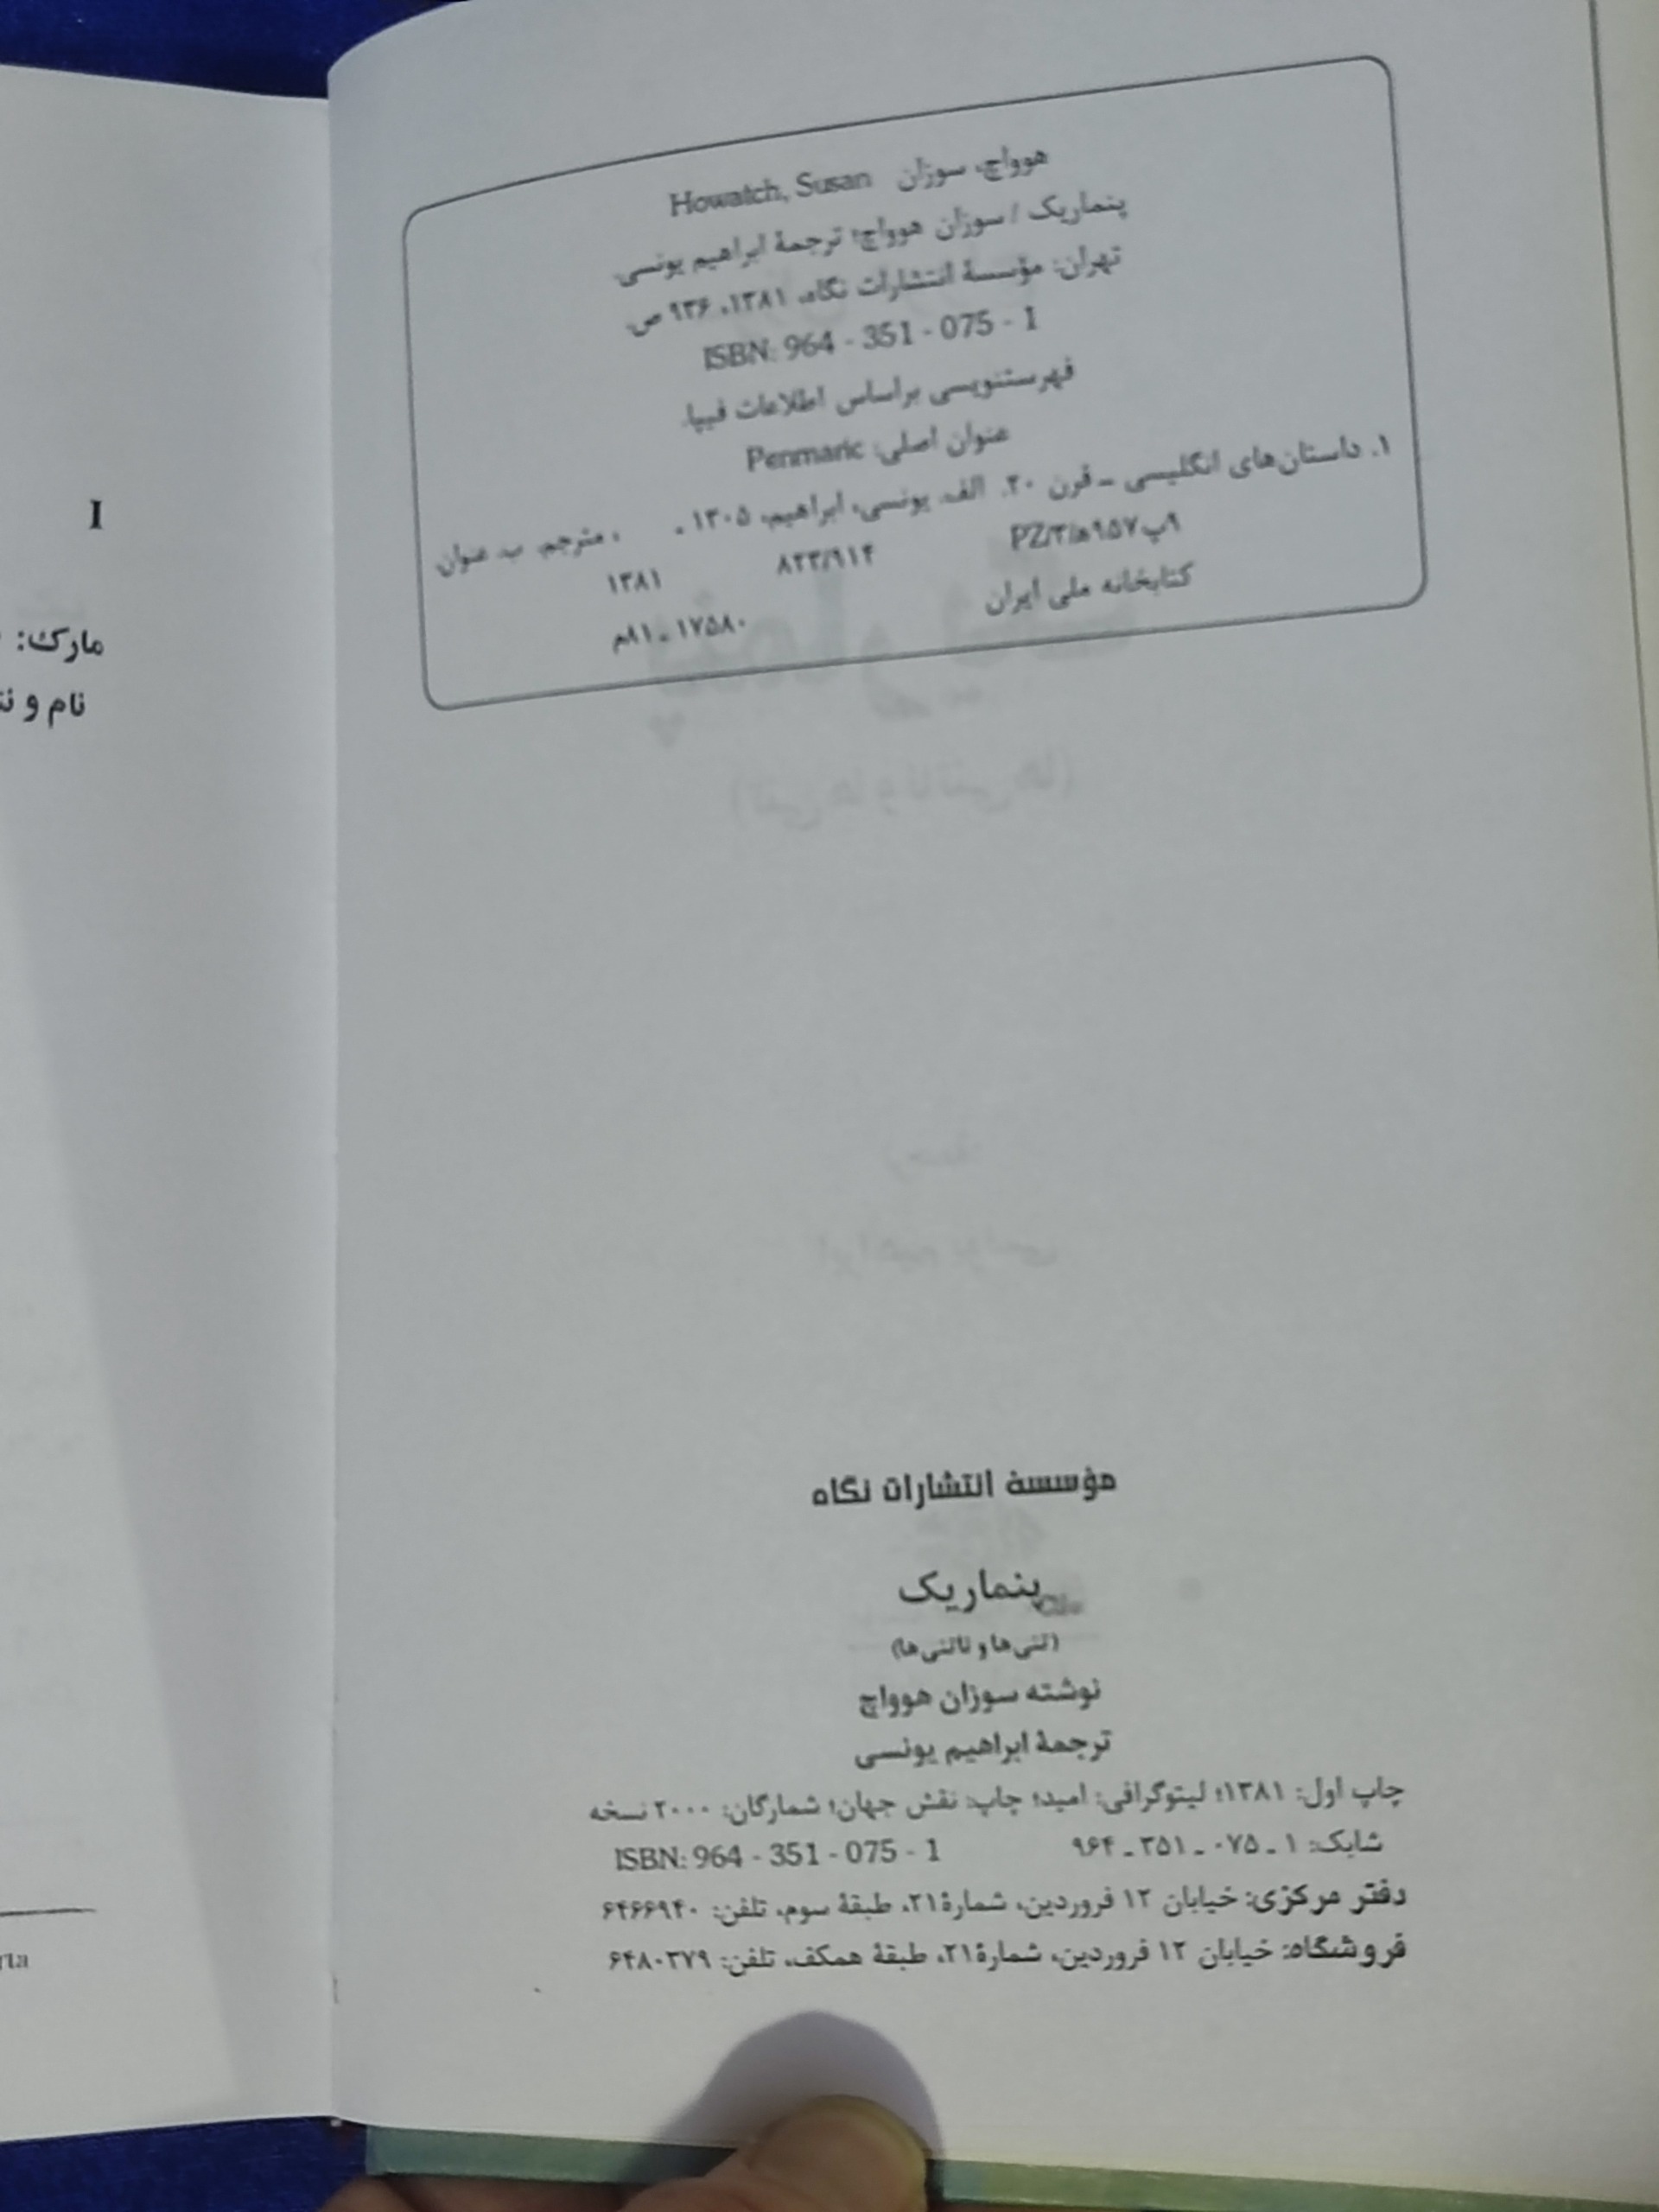 هوواچ، سوزان Howatch, Susan
پنماریک / سوزان هوواچ؛ ترجمهٔ ابراهیم یونسی.
تهران: مؤسسهٔ انتشارات نگاه، ۱۳۸۱. ۹۳۶ ص.
ISBN: 964 - 351 - 075 - 1
فهرستنویسی براساس اطلاعات فیپا.
عنوان اصلی: Penmaric
۱. داستان‌های انگلیسی ــ قرن ۲۰. الف. یونسی، ابراهیم، ۱۳۰۵ ـ ، مترجم. ب. عنوان.
۹پ۹۵۷ھ/PZ/۳ ۸۲۳/۹۱۴ ۱۳۸۱
کتابخانه ملی ایران ۱۷۵۸۰ ـ ۸۱م
مؤسسهٔ انتشارات نگاه
پنماریک
(تنی‌ها و ناتنی‌ها)
نوشته سوزان هوواچ
ترجمهٔ ابراهیم یونسی
چاپ اول: ۱۳۸۱؛ لیتوگرافی: امید؛ چاپ: نقش جهان؛ شمارگان: ۲۰۰۰ نسخه
شابک: ۱ ـ ۰۷۵ ـ ۳۵۱ ـ ۹۶۴ ISBN: 964 - 351 - 075 - 1
دفتر مرکزی: خیابان ۱۲ فروردین، شمارهٔ ۲۱، طبقهٔ سوم، تلفن: ۶۴۶۶۹۴۰
فروشگاه: خیابان ۱۲ فروردین، شمارهٔ ۲۱، طبقهٔ همکف، تلفن: ۶۴۸۰۳۷۹
I
مارک:
نام و